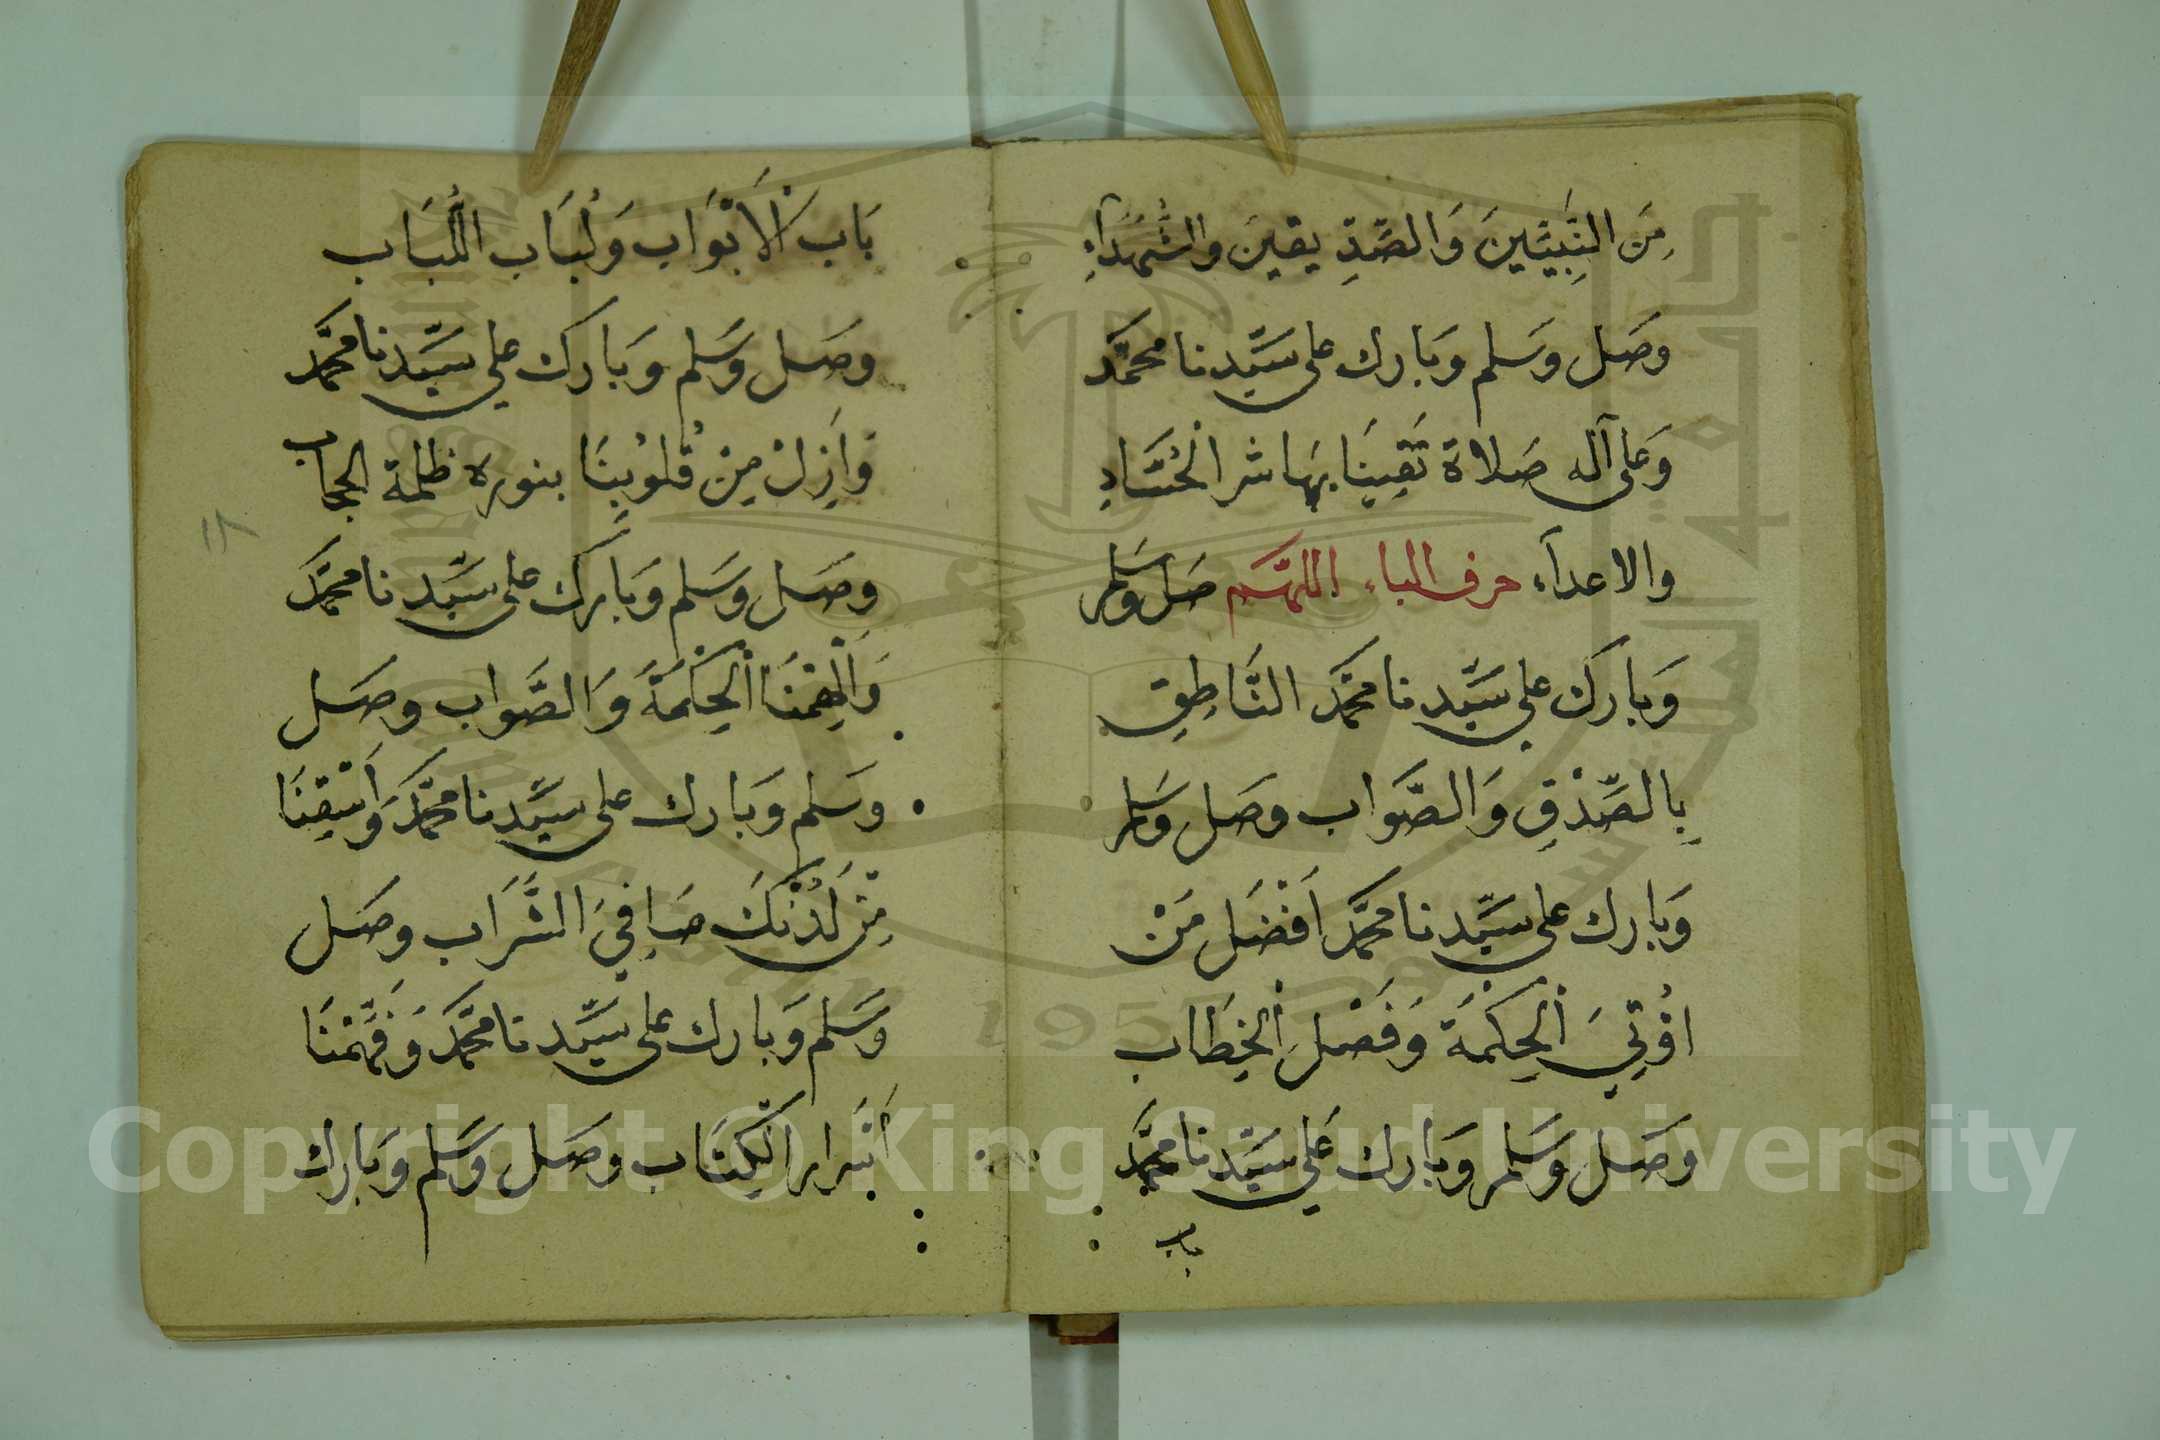 مِنَ النَّبِيِّينَ وَالصِّدِّيقِينَ وَالشُّهَدَآءِ
وَصَل وَسَلم وَبَارك على سَيِّدنا محمَّد
وَعَلى آله صَلاة تَقِينَا بِهَا شر الْحُسَّادِ
والاعدآء حرف الباء اللهم صَل وَسَلم
وَبارك على سَيِّدنا محمَّد النَّاطِقِ
بِالصِّدْقِ وَالصَّوَاب وصَل وسَلم
وَبارك على سَيِّدنا محمَّد اَفْضَل مَنْ
اُوْتِيَ الْحِكْمَةَ وَفَصْلَ الْخِطَاب
وَصَل وَسَلم وَبَارك عَلى سَيِّدنا محمَّد
باب
بَاب الْاَبْوَاب وَلُبَاب اللُّبَاب
وصَل وَسَلم وَبَارك على سَيِّدنا محمَّد
وَاَزِلْ مِنْ قُلُوْبِنَا بنوره ظلمة الحجاب
وصَل وسَلم وَبَارك على سَيِّدنا محمَّد
وَاَلْهِمْنَا الْحِكْمَةَ وَالصَّواب وصَل
وسَلم وَبَارك على سَيِّدنا محمَّد وَاَسْقِنَا
مِنْ لَدُنْكَ صَافِيَ الشَّرَاب وصَل
وسَلم وَبارك على سَيِّدنا محمَّد وَفَهِّمْنَا
اَسْرَار الْكِتَاب وصَل وَسَلم وَبَارك
١٨
Copyright © King Saud University
1957